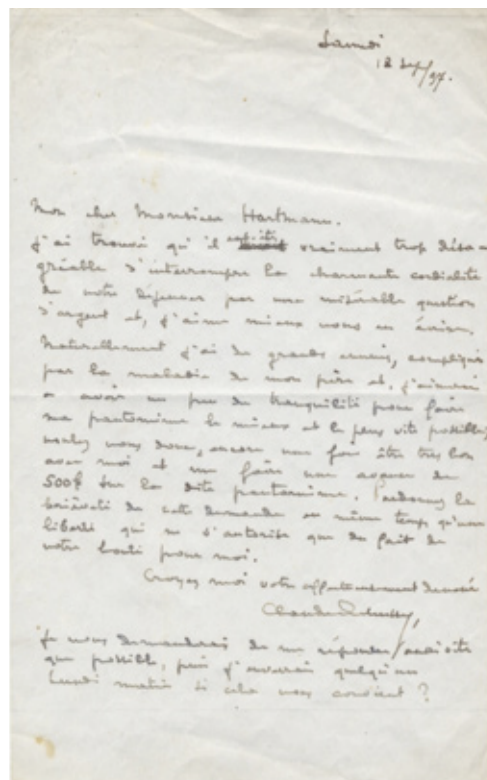 Samedi
18 Sept/97.
Mon cher Monsieur Hartmann.
J'ai trouvé qu'il eut été vraiment trop désa-
gréable d'interrompre la charmante cordialité
de notre déjeuner par une misérable question
d'argent et, j'aime mieux vous en écrire.
Naturellement j'ai de grands ennuis, compliqués
par la maladie de mon père et, j'aimerai
a avoir un peu de tranquilité pour faire
ma pantomime le mieux et le plus vite possible,
voulez vous donc, encore une fois être très bon
avec moi et me faire une avance de
500f sur la dite pantomime. Pardonnez la
brièveté de cette demande en même temps qu'une
liberté qui ne s'autorise que du fait de
votre bonté pour moi.
Croyez moi votre affectueusement dévoué
Claude Debussy,
Je vous demanderais de me répondre aussitôt
que possible, puis j'enverrais quelqu'un
Lundi matin si cela vous convient ?